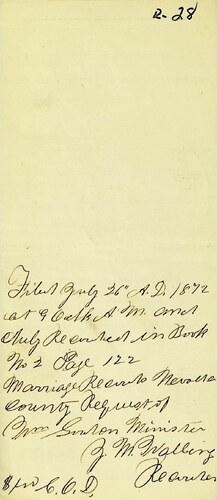 R-28
Filed July 26th A.D. 1872
at 9 O'clk A.M. and
duly Recorded in Book
No 2 Page 122
Marriage Records Nevada
County Request of
Wm Gordon Minister
J. M. Walling
Recorder
C.O.D.